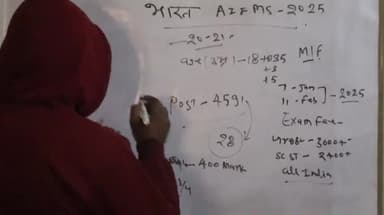 भारत AIIMS - 2025
20-21
18 + 035 M/F
+3
+5
7 - Jan
11 - Feb
2025
Post - 4591
28
Exam Fee -
3000+
SC ST - 2400+
All India
400 Mark
1/4